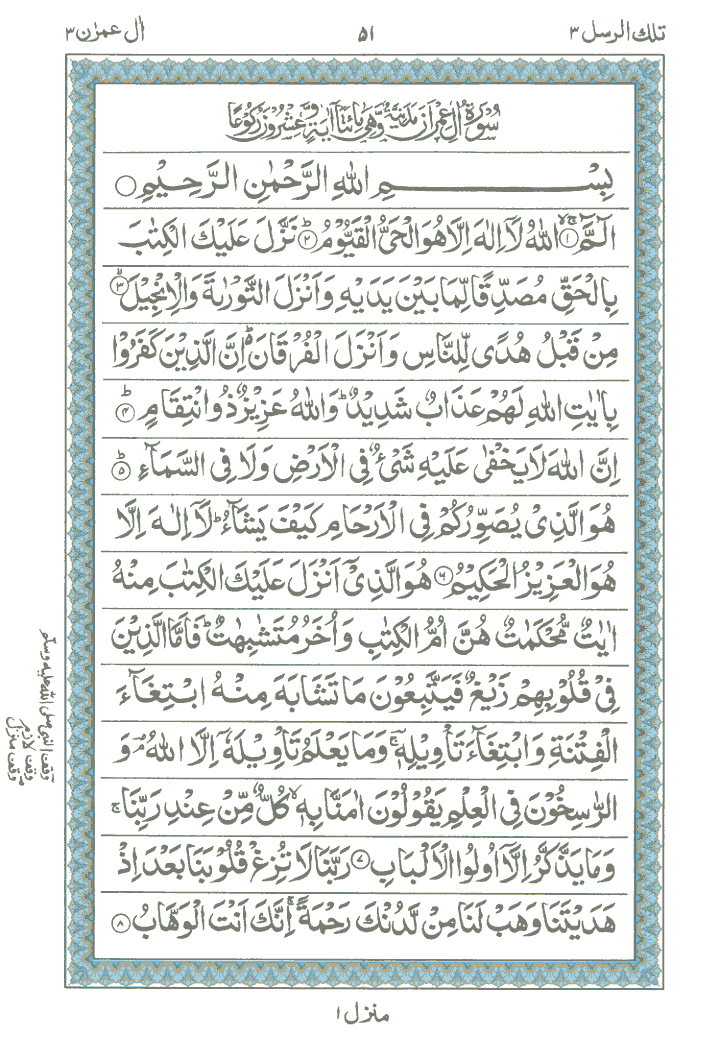 تلك الرسل ٣
٥١
اٰل عمرٰن ٣
سُوْرَةُ اٰلِ عِمْرَانَ مَدَنِيَّةٌ وَّهِيَ مِائَتَا اٰيَةٍ وَّعِشْرُوْنَ رُكُوْعًا
بِسْمِ اللهِ الرَّحْمٰنِ الرَّحِيْمِ ۝
الٓمّٓ ۝١ اللهُ لَاۤ اِلٰهَ اِلَّا هُوَ الْحَيُّ الْقَيُّوْمُ ۝٢ؕ نَزَّلَ عَلَيْكَ الْكِتٰبَ
بِالْحَقِّ مُصَدِّقًا لِّمَا بَيْنَ يَدَيْهِ وَاَنْزَلَ التَّوْرٰىةَ وَالْاِنْجِيْلَ ۝٣ۙ
مِنْ قَبْلُ هُدًى لِّلنَّاسِ وَاَنْزَلَ الْفُرْقَانَ ؕ اِنَّ الَّذِيْنَ كَفَرُوْا
بِاٰيٰتِ اللهِ لَهُمْ عَذَابٌ شَدِيْدٌ ؕ وَاللهُ عَزِيْزٌ ذُو انْتِقَامٍ ۝٤ؕ
اِنَّ اللهَ لَا يَخْفٰى عَلَيْهِ شَيْءٌ فِي الْاَرْضِ وَلَا فِي السَّمَآءِ ۝٥ؕ
هُوَ الَّذِيْ يُصَوِّرُكُمْ فِي الْاَرْحَامِ كَيْفَ يَشَآءُ ؕ لَاۤ اِلٰهَ اِلَّا
هُوَ الْعَزِيْزُ الْحَكِيْمُ ۝٦ هُوَ الَّذِيْۤ اَنْزَلَ عَلَيْكَ الْكِتٰبَ مِنْهُ
اٰيٰتٌ مُّحْكَمٰتٌ هُنَّ اُمُّ الْكِتٰبِ وَاُخَرُ مُتَشٰبِهٰتٌ ؕ فَاَمَّا الَّذِيْنَ
فِيْ قُلُوْبِهِمْ زَيْغٌ فَيَتَّبِعُوْنَ مَا تَشَابَهَ مِنْهُ ابْتِغَآءَ
الْفِتْنَةِ وَابْتِغَآءَ تَاْوِيْلِهٖ ۚ وَمَا يَعْلَمُ تَاْوِيْلَهٗۤ اِلَّا اللهُ ۘ وَ
الرّٰسِخُوْنَ فِي الْعِلْمِ يَقُوْلُوْنَ اٰمَنَّا بِهٖ ۙ كُلٌّ مِّنْ عِنْدِ رَبِّنَا ۚ
وَمَا يَذَّكَّرُ اِلَّاۤ اُولُوا الْاَلْبَابِ ۝٧ رَبَّنَا لَا تُزِغْ قُلُوْبَنَا بَعْدَ اِذْ
هَدَيْتَنَا وَهَبْ لَنَا مِنْ لَّدُنْكَ رَحْمَةً ۚ اِنَّكَ اَنْتَ الْوَهَّابُ ۝٨
وقف النبي صلى الله عليه وسلم
وقف لازم
وقف منزل
منزل ١